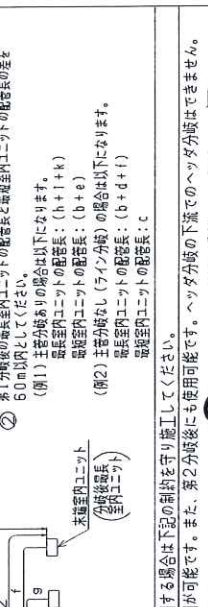 ② 第1分岐後の最長室内ユニットの配管長と最短室内ユニットの配管長の差を
60m以内としてください。
(例1) 主管分岐ありの場合は以下になります。
最長室内ユニットの配管長：(h+i+k)
最短室内ユニットの配管長：(b+e)
(例2) 主管分岐なし（ライン分岐）の場合は以下になります。
最長室内ユニットの配管長：(b+d+f)
最短室内ユニットの配管長：c
f
g
末端室内ユニット
(分岐後最長
室内ユニット)
する場合は下記の制約を守り施工してください。
が可能です。また、第2分岐後にも使用可能です。ヘッダ分岐の下流でのヘッダ分岐はできません。